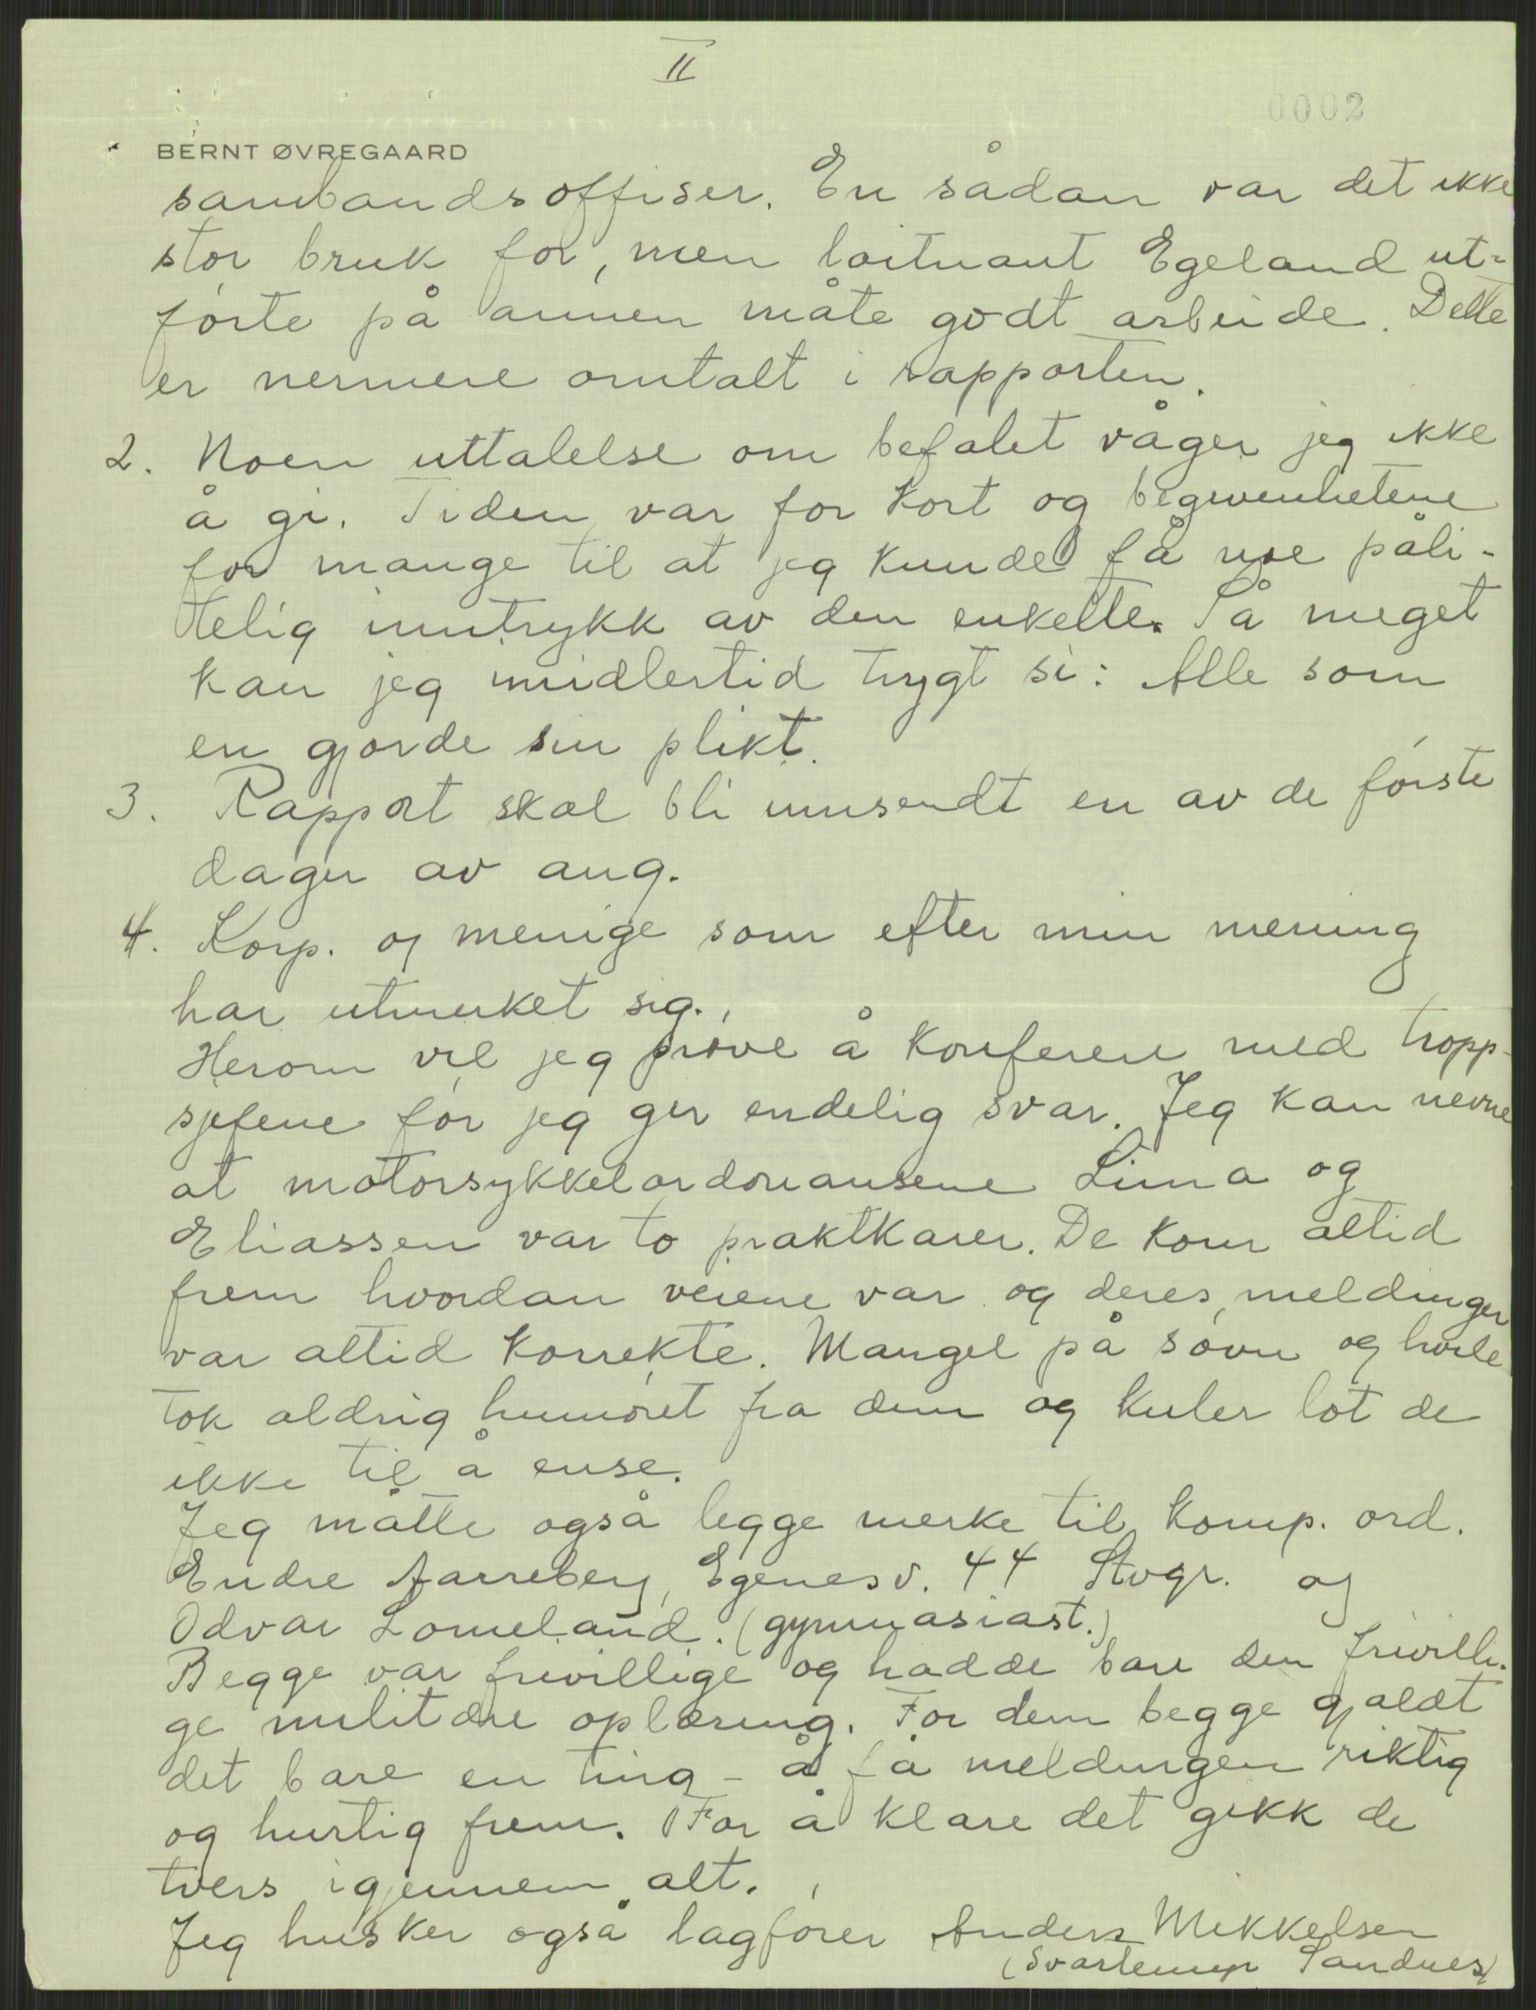 II
0002
BERNT ØVREGAARD
sambandsoffiser. En sådan var det ikke
stor bruk for, men løitnant Egeland ut-
førte på annen måte godt arbeide. Dette
er nermere omtalt i rapporten.
2. Noen uttalelse om befalet våger jeg ikke
å gi. Tiden var for kort og begivenhetene
for mange til at jeg kunde få noe påli-
telig inntrykk av den enkelte. Så meget
kan jeg imidlertid trygt si: Alle som
en gjorde sin plikt.
3. Rapport skal bli innsendt en av de første
dager av aug.
4. Korp. og menige som efter min mening
har utmerket sig.
Herom vil jeg prøve å konferere med tropp-
sjefene før jeg gir endelig svar. Jeg kan nevne
at motorsykkelordonansene Lima og
Eliassen var to praktkarer. De kom altid
frem hvordan veiene var og deres meldinger
var altid korrekte. Mangel på søvn og hvile
tok aldrig humøret fra dem og kuler lot de
ikke til å ense.
Jeg måtte også legge merke til komp. ord.
Endre Aarreberg, Egenesv. 44 Stvgr. og
Odvar Lomeland. (gymnasiast.)
Begge var frivillige og hadde bare den frivilli-
ge militære oplæring. For dem begge gjaldt
det bare en ting - å få meldingen riktig
og hurtig frem. For å klare det gikk de
tvers igjennem alt.
Jeg husker også lagfører Anders Mikkelsen
Sandnes)